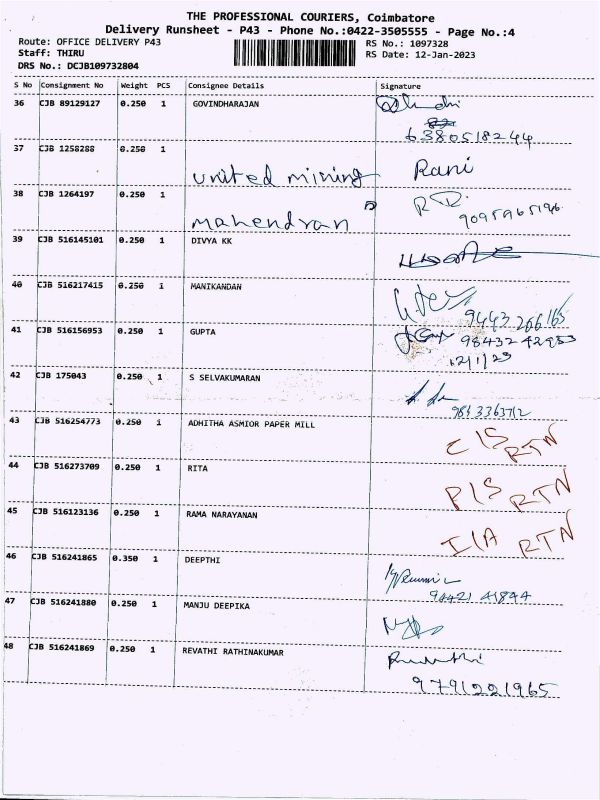 THE PROFESSIONAL COURIERS, Coimbatore
Delivery Runsheet - P43 - Phone No.:0422-3505555 - Page No.:4
Route: OFFICE DELIVERY P43
RS No.: 1097328
Staff: THIRU
RS Date: 12-Jan-2023
DRS No.: DCJB109732804
S No Consignment No Weight PCS Consignee Details Signature
36 CJB 89129127 0.250 1 GOVINDHARAJAN
6380518244
37 CJB 1258288 0.250 1
united mining Rani
38 CJB 1264197 0.250 1
mahendran 9095965196
39 CJB 516145101 0.250 1 DIVYA KK
40 CJB 516217415 0.250 1 MANIKANDAN
9443266163
41 CJB 516156953 0.250 1 GUPTA
9843242953
12/1/23
42 CJB 175043 0.250 1 S SELVAKUMARAN
9843363712
43 CJB 516254773 0.250 1 ADHITHA ASMIOR PAPER MILL
C/S RTN
44 CJB 516273709 0.250 1 RITA
P/S RTN
45 CJB 516123136 0.250 1 RAMA NARAYANAN
I/A RTN
46 CJB 516241865 0.350 1 DEEPTHI
94421 41844
47 CJB 516241880 0.250 1 MANJU DEEPIKA
48 CJB 516241869 0.250 1 REVATHI RATHINAKUMAR
9791221965